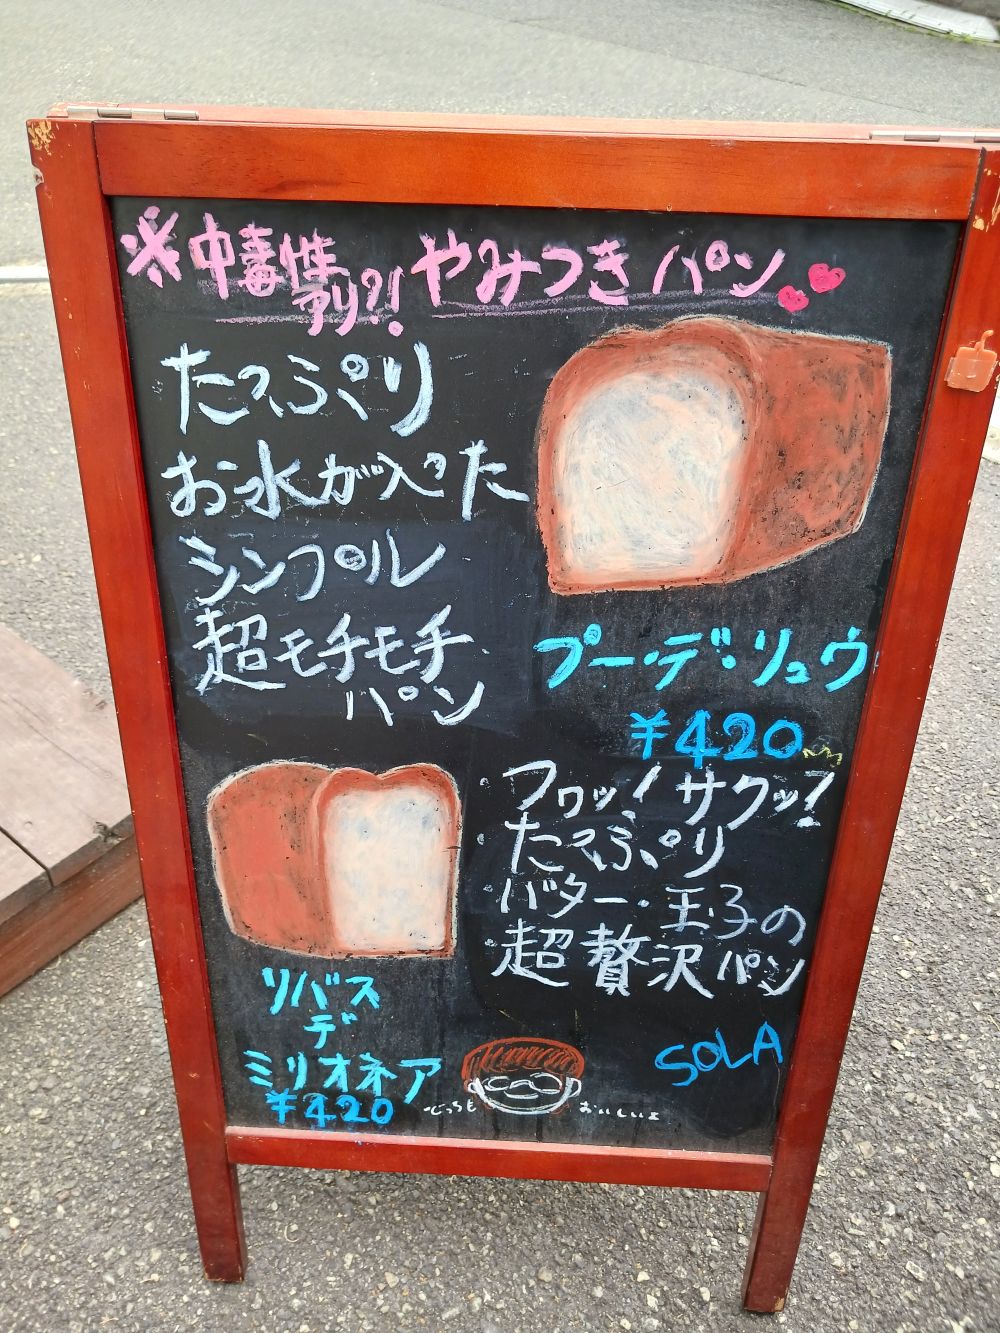 ※中毒性アリ?!やみつきパン
たっぷり
お水が入った
シンプル
超モチモチ
パン
プー・デ・リュウ
¥420
・フワッ!サクッ!
・たっぷり
バター・玉子の
・超贅沢パン
リバス
デ
ミリオネア
¥420
SOLA
どっちも
おいしいよ